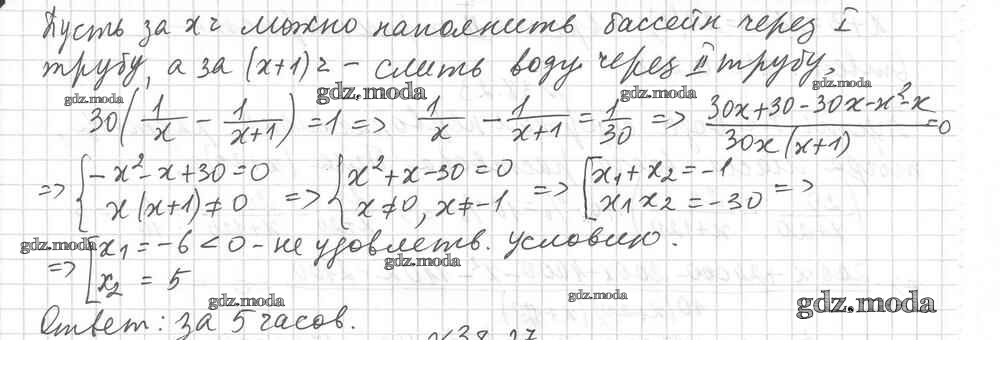 Пусть за x ч можно наполнить бассейн через I
трубу, а за (x+1) ч – слить воду через II трубу,
gdz.moda gdz.moda gdz.moda gdz.moda
30(1/x − 1/(x+1)) = 1 => 1/x − 1/(x+1) = 1/30 => (30x+30−30x−x²−x)/(30x(x+1)) = 0
=> { −x²−x+30=0 => { x²+x−30=0 => [ x₁+x₂=−1 =>
x(x+1)≠0 x≠0, x≠−1 x₁x₂=−30
gdz.moda [ x₁ = −6 < 0 – не удовлетв. условию.
=> x₂ = 5 gdz.moda
gdz.moda gdz.moda gdz.moda
Ответ: за 5 часов.